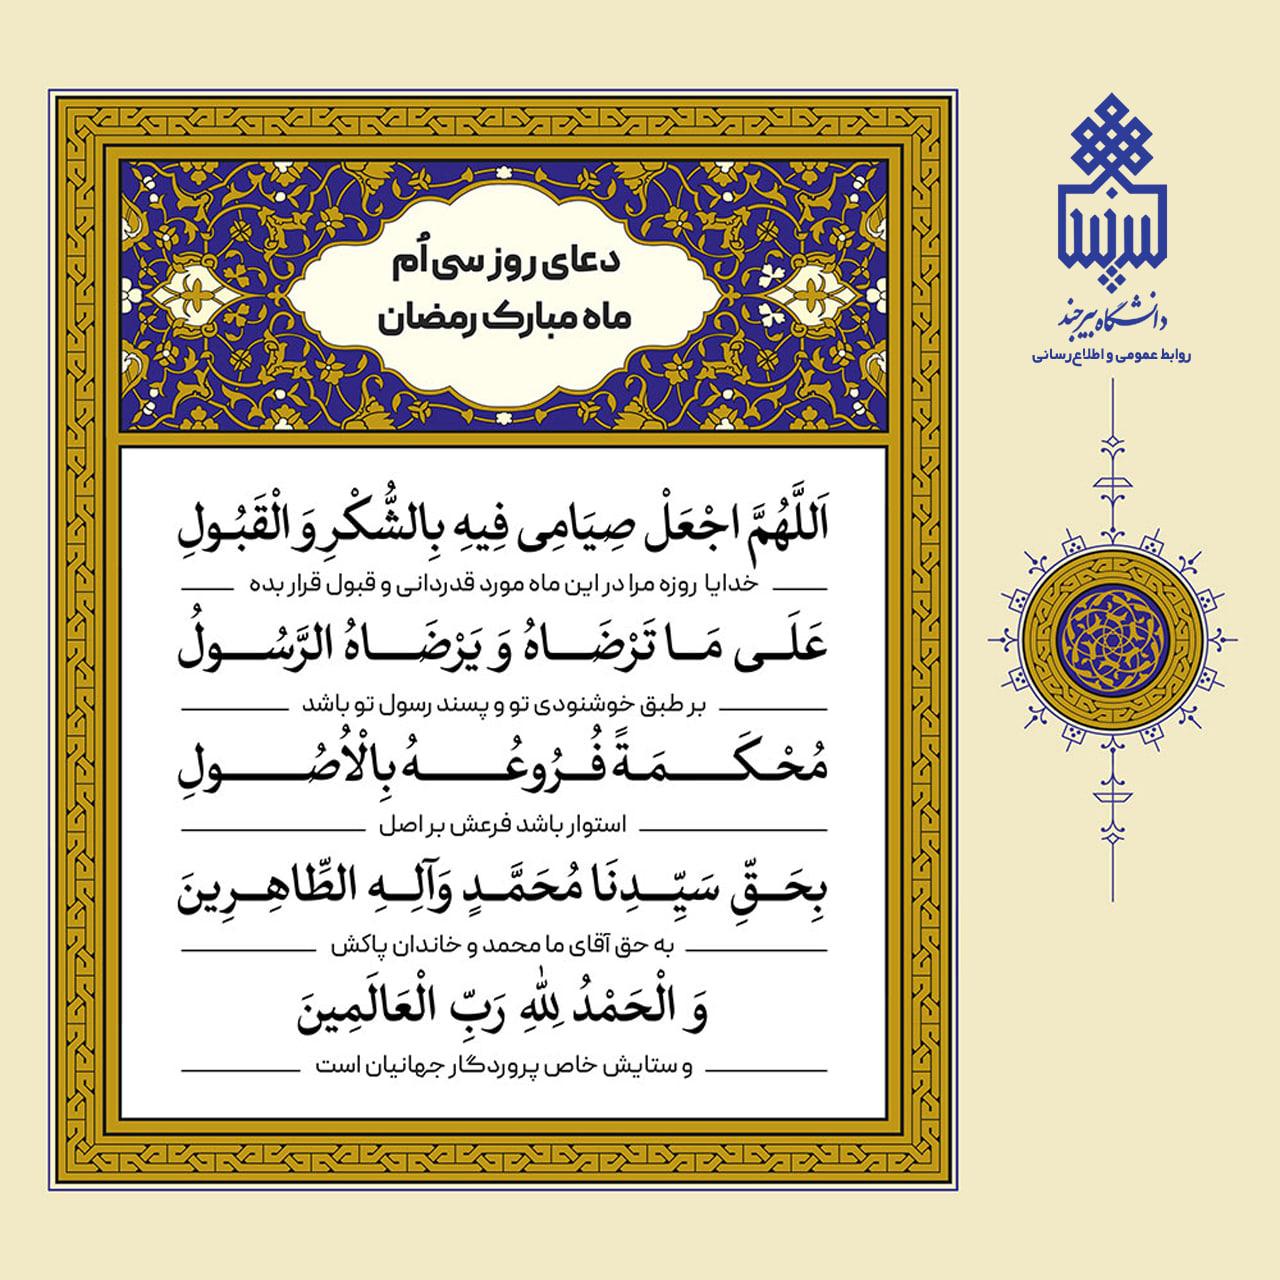 دعای روز سی اُم
ماه مبارک رمضان
اَللَّهُمَّ اجْعَلْ صِيَامِی فِيهِ بِالشُّكْرِ وَ الْقَبُولِ
خدایا روزه مرا در این ماه مورد قدردانی و قبول قرار بده
عَلَی مَا تَرْضَاهُ وَ يَرْضَاهُ الرَّسُولُ
بر طبق خوشنودی تو و پسند رسول تو باشد
مُحْكَمَةً فُرُوعُهُ بِالْاُصُولِ
استوار باشد فرعش بر اصل
بِحَقِّ سَيِّدِنَا مُحَمَّدٍ وَآلِهِ الطَّاهِرِينَ
به حق آقای ما محمد و خاندان پاکش
وَ الْحَمْدُ لِلّٰهِ رَبِّ الْعَالَمِينَ
و ستایش خاص پروردگار جهانیان است
دانشگاه بیرجند
روابط عمومی و اطلاع‌رسانی